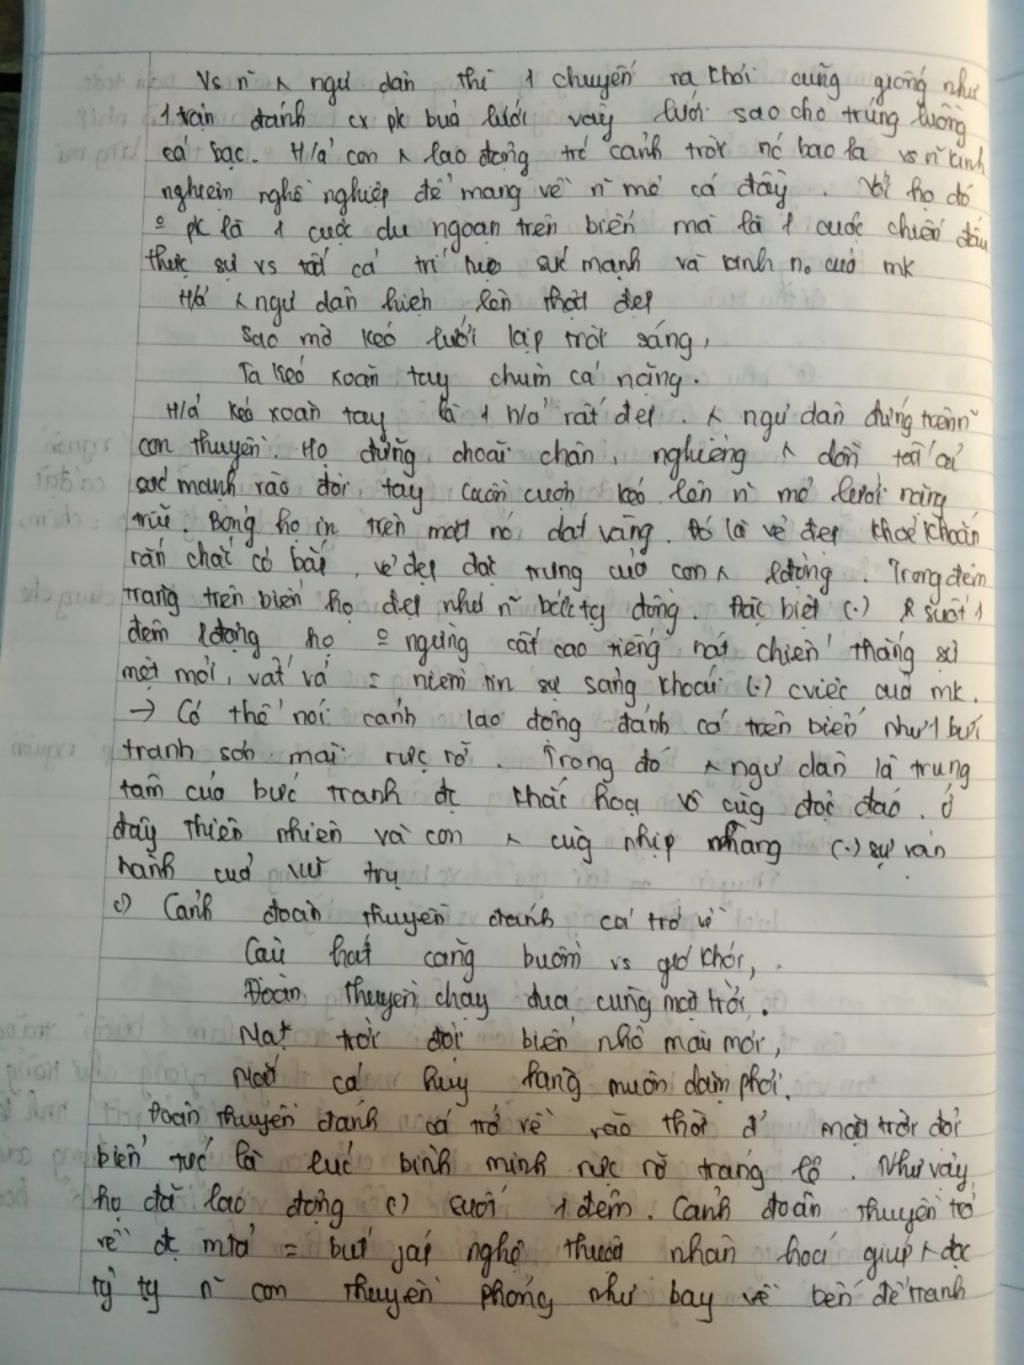 Vs n~ ʌ ngư dân thì 1 chuyến ra khơi cũng giống như
1 trận đánh cx pk bủa lưới vây lưới sao cho trúng luồng
cá bạc. H/ả con ʌ lao động trc cảnh trời nc bao la vs n~ kinh
nghiệm nghề nghiệp để mang về n~ mẻ cá đầy. Với họ đó
º pk là 1 cuộc du ngoạn trên biển mà là 1 cuộc chiến đấu
thực sự vs tất cả trí tuệ sức mạnh và của mk
H/ả ʌ ngư dân hiện lên thật đẹp
Sao mờ kéo lưới kịp trời sáng,
Ta kéo xoăn tay chùm cá nặng.
H/ả kéo xoăn tay là 1 h/ả rất đẹp. ʌ ngư dân đứng trên n~
con thuyền. Họ đứng choãi chân, nghiêng ʌ dồn tất cả
sức mạnh vào đôi tay cuồn cuộn kéo lên n~ mẻ lưới nặng
trĩu. Bóng họ in trên mặt nc dát vàng. Đó là vẻ đẹp khoẻ khoắn
rắn chắc có bắp, vẻ đẹp đặc trưng của con ʌ lđộng. Trong đêm
trăng trên biển họ đẹp như n~ bức tg đồng. Đặc biệt (.) suốt 1
đêm lđộng họ º ngừng cất cao tiếng hát chiến thắng sự
mệt mỏi, vất vả = niềm tin sự sảng khoái (.) cviệc của mk.
→ Có thể nói cảnh lao động đánh cá trên biển như 1 bức
tranh sơn mài rực rỡ. Trong đó ʌ ngư dân là trung
tâm của bức tranh đc khắc hoạ vô cùg độc đáo. Ở
đây thiên nhiên và con ʌ cùg nhịp nhàng (.) sự vận
hành của vũ trụ
c) Cảnh đoàn thuyền đánh cá trở về
Câu hát căng buồm vs gió khơi,
Đoàn thuyền chạy đua cùng mặt trời.
Mặt trời đội biển nhô màu mới,
Mắt cá huy hoàng muôn dặm phơi.
Đoàn thuyền đánh cá trở về vào thời đ' mặt trời đội
biển tức là lúc bình minh rực rỡ tráng lệ. Như vậy
họ đã lao động (.) suốt 1 đêm. Cảnh đoàn thuyền trở
về đc mtả = bút pháp nghệ thuật nhân hoá giúp ʌ đọc
tg tg n~ con thuyền phóng như bay về bến để tranh